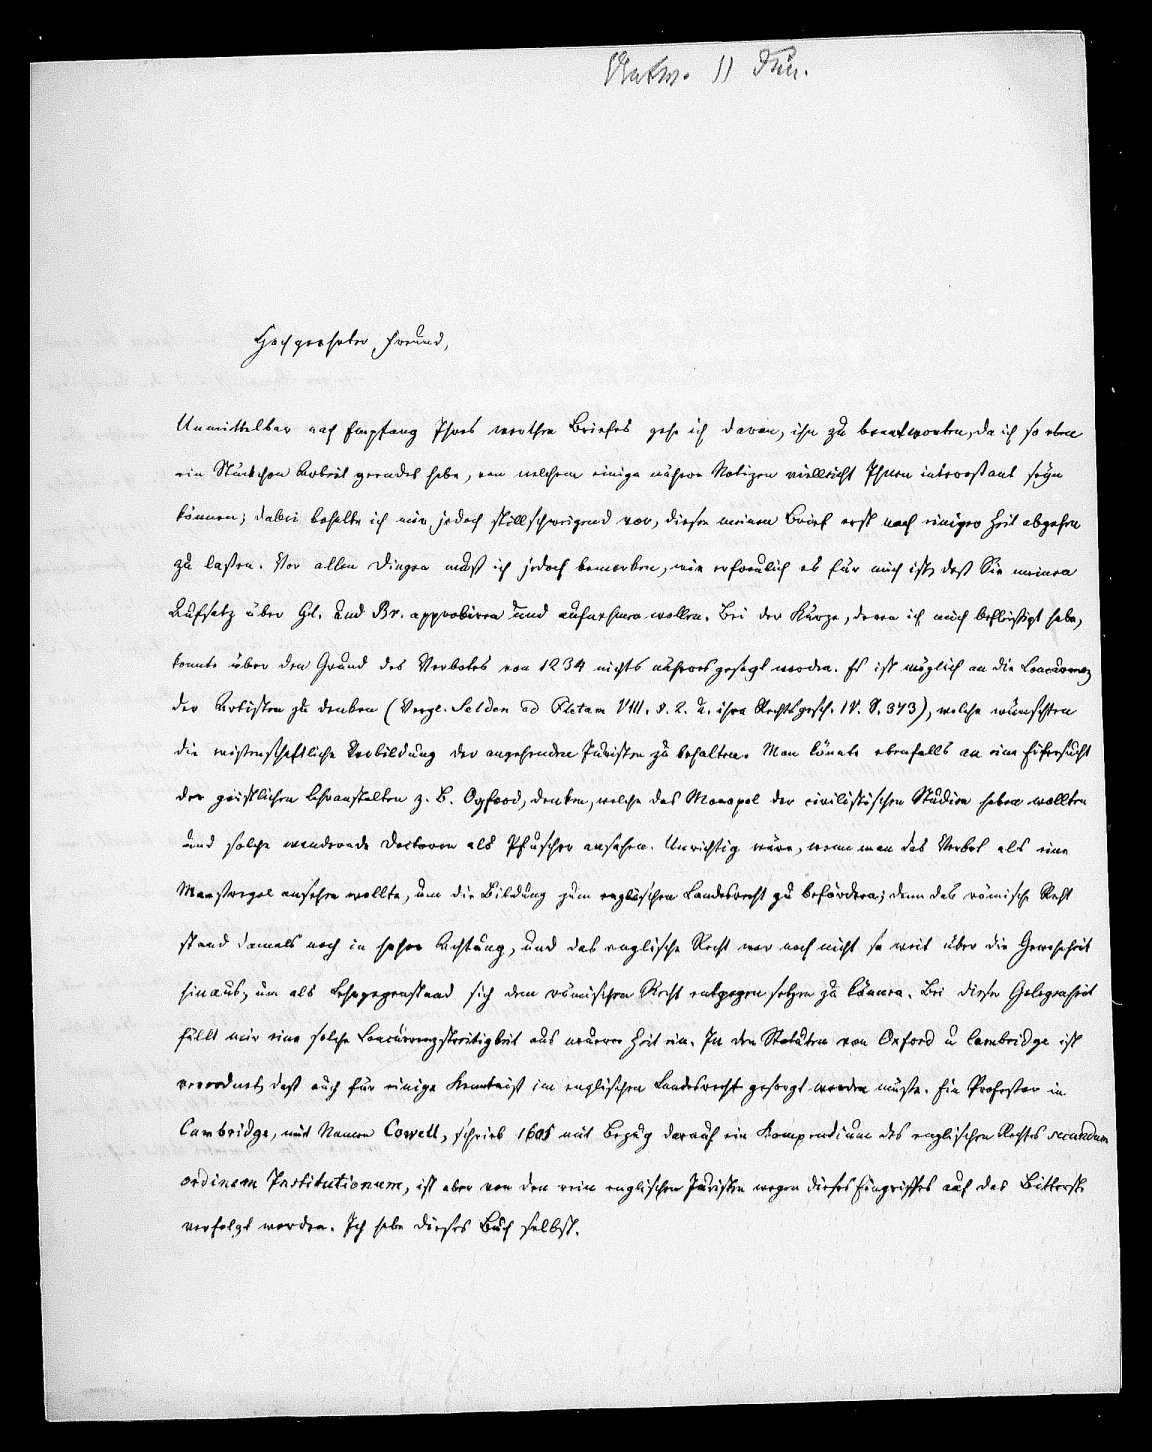 Antw. 11 Jun.
Hochgeehrter Freund,
Unmittelbar nach Empfang Ihres werthen Briefes gehe ich daran, ihn zu beantworten, da ich so eben
ein Stückchen Arbeit geendet habe, von welchem einige nähere Notizen vielleicht Ihnen interessant seyn
können; dabei behalte ich mir jedoch stillschweigend vor, diesen meinen Brief erst nach einiger Zeit abgehen
zu lassen. Vor allen Dingen muß ich jedoch bemerken, wie erfreulich es für mich ist, daß Sie meinen
Aufsatz über Gl. und Br. approbiren und aufnehmen wollen. Bei der Kürze, deren ich mich befleißigt habe,
konnte über den Grund des Verbotes von 1234 nichts näheres gesagt werden. Es ist möglich an die Concurrenz
der Artisten zu denken (Vergl. Selden ad Fletam VIII. §. 2. u. ihre Rechtsgesch. IV. S. 373), welche wünschten
die wissenschaftliche Vorbildung der angehenden Juristen zu behalten. Man könnte ebenfalls an eine Eifersucht
der geistlichen Lehranstalten z. B. Oxford, denken, welche das Monopol der civilistischen Studien haben wollten
und solche wandernde Doctoren als Pfuscher ansahen. Unrichtig wäre, wenn man das Verbot als eine
Maasregel ansehen wollte, um die Bildung zum englischen Landesrecht zu befördern; denn das römische Recht
stand damals noch in hoher Achtung, und das englische Recht war noch nicht so weit über die Gewohnheit
hinaus, um als Lehrgegenstand sich dem römischen Recht entgegen setzen zu können. Bei dieser Gelegenheit
fällt mir eine solche Concurrenzstreitigkeit aus neuerer Zeit ein. In den Statuten von Oxford u Cambridge ist
verordnet, daß auch für einige Kenntniß im englischen Landesrecht gesorgt werden müsse. Ein Professor in
Cambridge, mit Namen Cowell, schrieb 1605 mit Bezug darauf ein Kompendium des englischen Rechts secundum
ordinem Institutionum, ist aber von den rein englischen Juristen wegen dieses Eingriffes auf das Bitterste
verfolgt worden. Ich habe dieses Buch selbst.